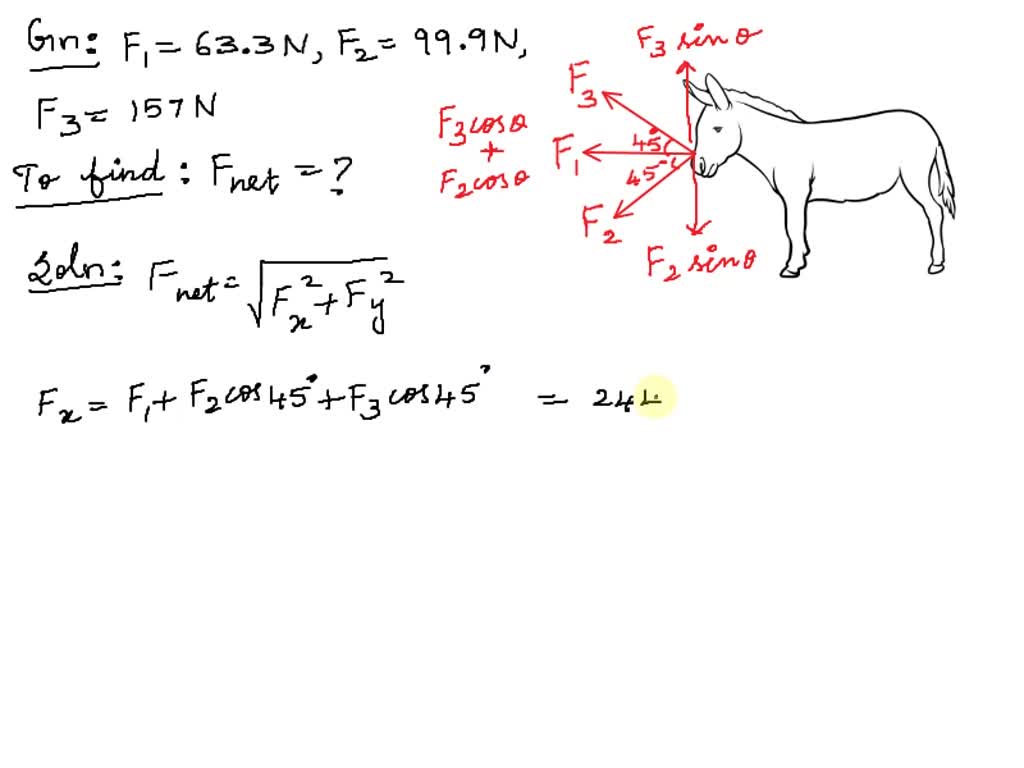 Gn: F₁ = 63.3N, F₂ = 99.9N,
F₃ = 157N
To find: Fnet = ?
Soln: Fnet = √Fx² + Fy²
Fx = F₁ + F₂ cos 45° + F₃ cos 45° = 244.
F₃ sin θ
F₃
F₃ cos θ
+
F₂ cos θ
45°
F₁
45°
F₂
F₂ sin θ